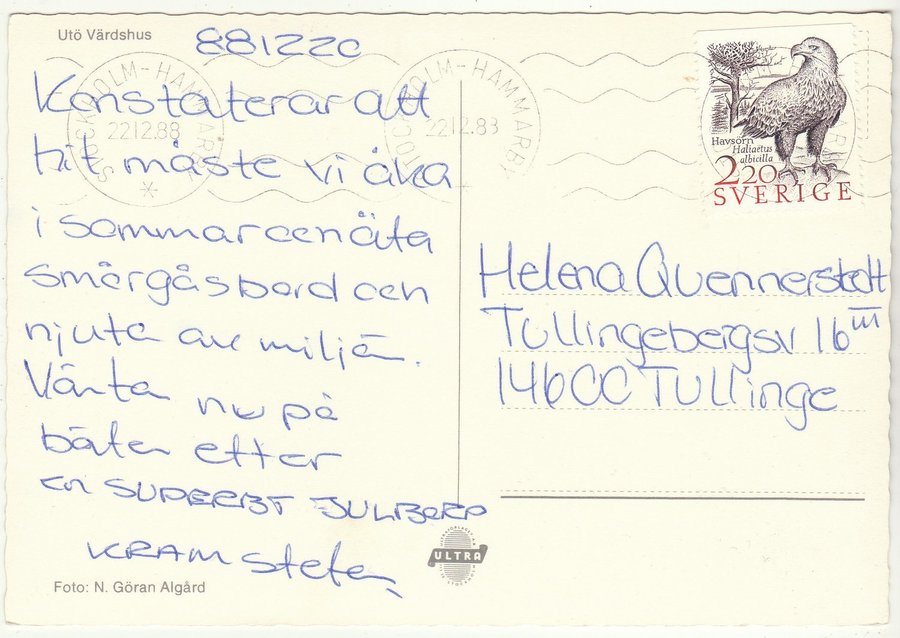 Utö Värdshus
881220
Konstaterar att
hit måste vi åka
i sommar och äta
smörgåsbord och
njuta av miljön.
Vänta nu på
båten efter
en SUPERBT JULBORD
KRAM Stefan
Foto: N. Göran Algård
STOCKHOLM-HAMMARBY
22.12.88
STOCKHOLM-HAMMARBY
22.12.88
Havsörn
Haliaëtus
albicilla
2.20
SVERIGE
Helena Quennerstedt
Tullingebergsv 16 III
14600 Tullinge
ULTRA